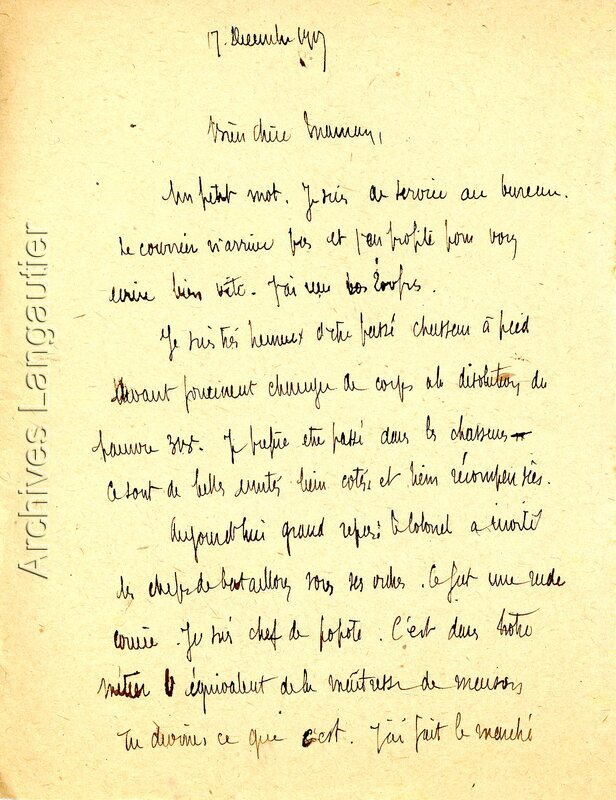 17 Decembre 1917
Bien chère Maman,
Un petit mot. Je suis de service au bureau.
Le courrier n'arrive pas et j'en profite pour vous
écrire bien vite. J'ai reçu vos
Je suis très heureux d'être passé chasseur à pied
devant forcément changer de corps à la dissolution du
pauvre Je préfère être passé dans les chasseurs
Ce sont de belles unités bien cotées et bien récompensées.
Aujourd'hui grand repas le Colonel a invité
les chefs de bataillons sous ses ordres. Ce fut une rude
corvée. Je suis chef de popote. C'est dans notre
métier l'équivalent de la maîtresse de maison
Tu devines ce que c'est. J'ai fait le marché
Archives Langautier